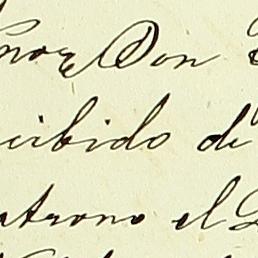 nor Don
cibido de
atrono el